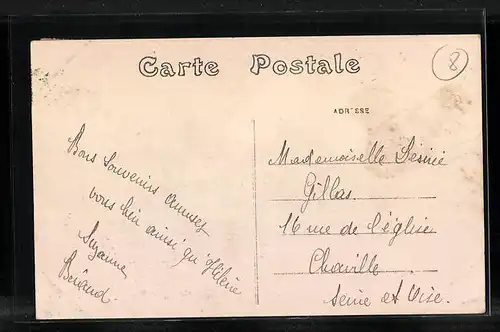 Carte Postale
8
ADRESSE
Bons souvenirs amusez
vous bien ainsi qu'Hélène
Suzanne
Béraud.
Mademoiselle Désiré
Gillas.
16 rue de l'église
Chaville
Seine et Oise.